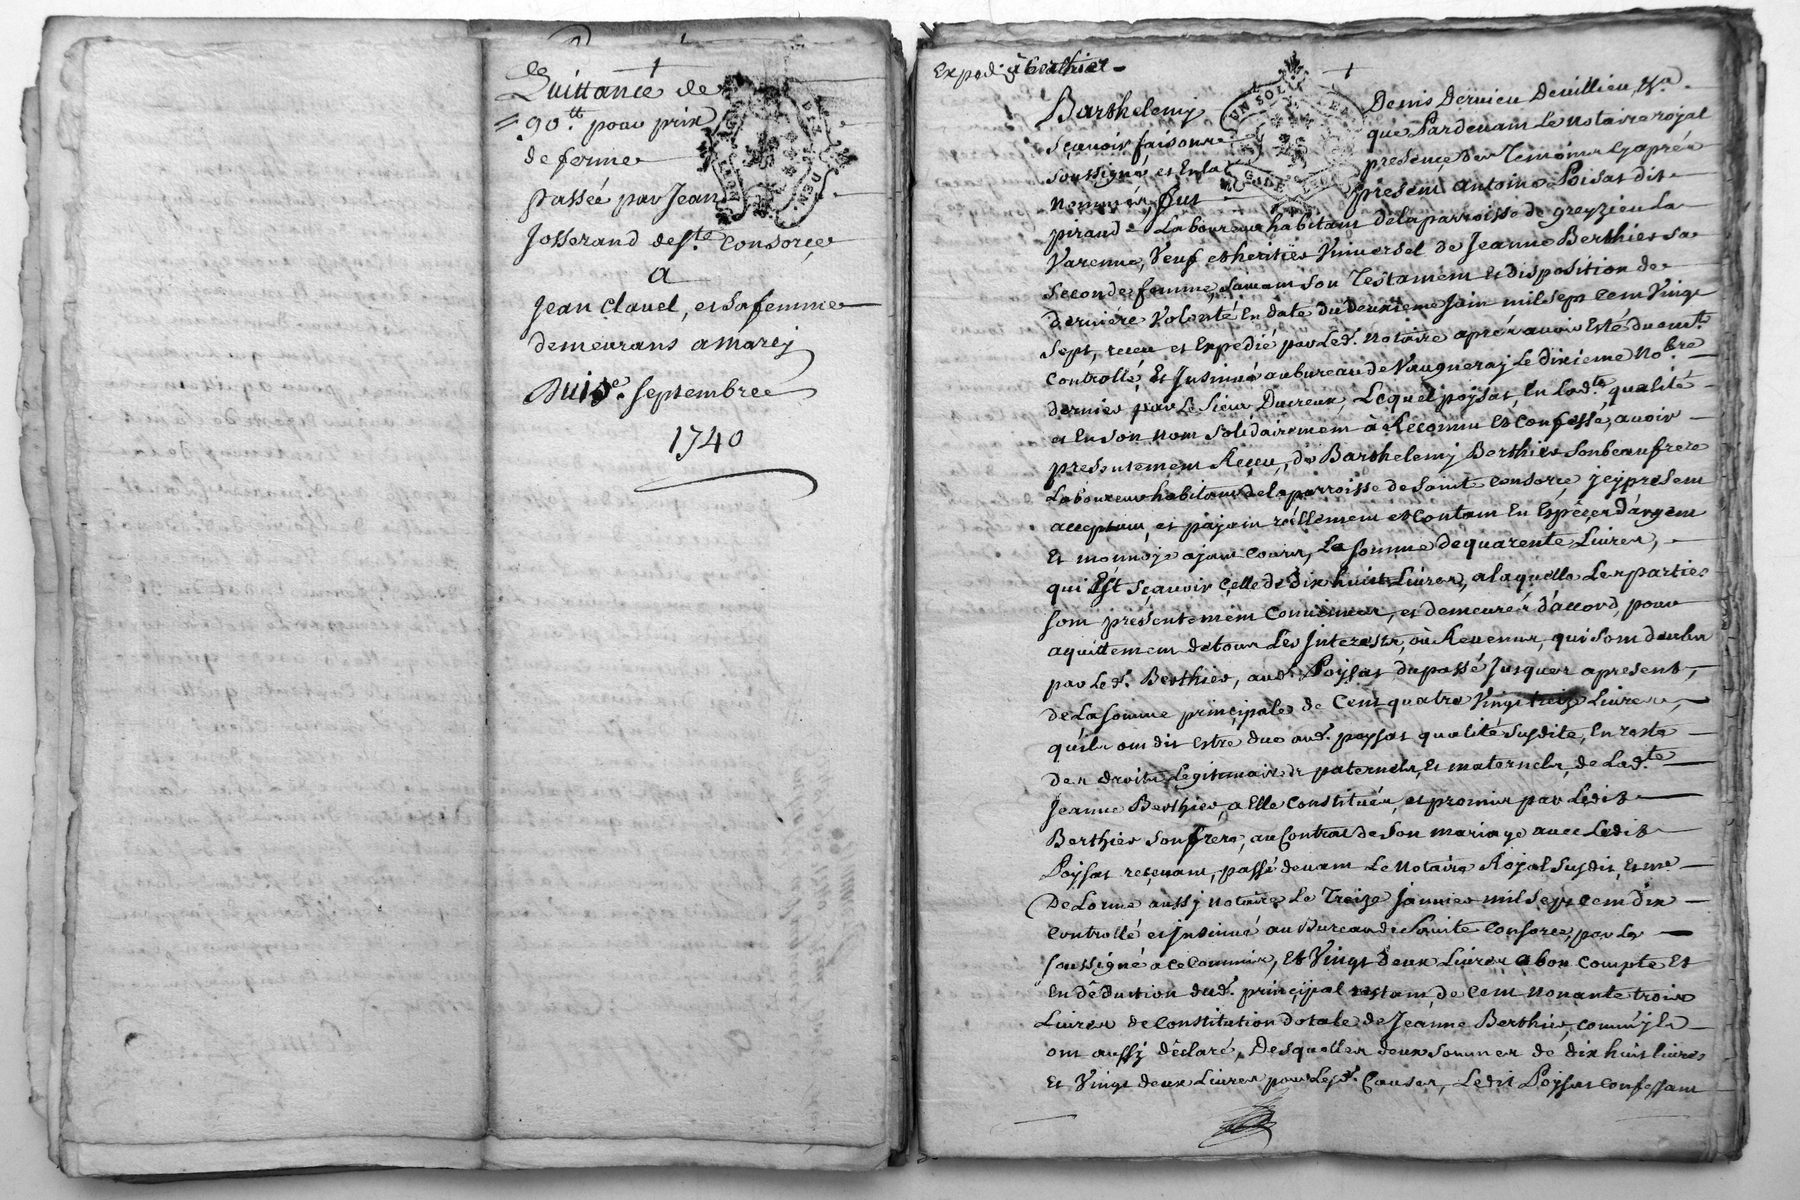 Quittance de
90.tt pour prix
de ferme
passée par Jean
Josserand de Ste. Consorce
a
Jean Clavel, et sa femme
demeurans a Marcy
Du 15e. septembre
1740
Exped. à berthier
Barthelemy Denis Dervieu Devillieu,
sçavoir faisons que Pardevant Le Notaire royal
soussigné et En la presence des Temoins Cy apres
nommés, fut present antoine Poisat dit
piraud Laboureur habitant de la parroisse de greyzieu La
Varenne, Veuf et heritier Universel de Jeanne Berthier sa
seconde femme, suivant son Testament et disposition de
derniere Volonté En date du deuxieme Juin mil sept Cent Vingt
sept, receu et Expedié par Led. Notaire apres avoir Esté duemt.
Controllé, Et Insinué au bureau de Vaugneray Le dixieme Nobre
dernier par Le sieur Ducreux, Lequel poysat, En Lad.te qualité
et En son nom solidairement à Reconnu Et Confessé, avoir
presentement Receu, de Barthelemy Berthier son beaufrere
Laboureur habitant de la parroisse de Sainte Consorce jcy present
acceptant, et payant réellement et Contant En Espêces d'argent
Et monnoye ayant cours, La somme de quarente Livres,
qui Est Sçavoir Çelle de dix huit Livres, a laquelle Les parties
sont présentement Convenues, et demeurés d'accord, pour
aquittement de tous Les Interests, où Revenus, qui sont deubs
par Led. Berthier, aud. Poysat du passé Jusques apresent,
de La somme principale de Cent quatre Vingt treize Livres,
qu'ils ont dit Estre due aud. poysat qualité susdite, En reste
des droits Legitimaires paternels, Et maternels, de Lad.te
Jeanne Berthier, a Elle Constitués, et promis par Ledit
Berthier son frere, au Contrat de son mariage avec Ledit
Poysat recevant, passé devant Le Notaire Royal susdit, Et me.
De Lorme aussy Notaire Le Treize Janvier mil sept cent dix
Controllé et Insinué au Bureau de Sainte Consorce, par Le
soussigné a ce Commis, Et Vingt deux Livres a bon Compte Et
En dêduction dud. principal restant, de Cent nonante trois
Livres de Constitution dotale de Jeanne Berthier, comm'jls
ont aussy déclaré, Desquelles deux sommes de dix huit livres
Et Vingt deux Livres pour Lesd. Causes, Ledit Poysat Confessant